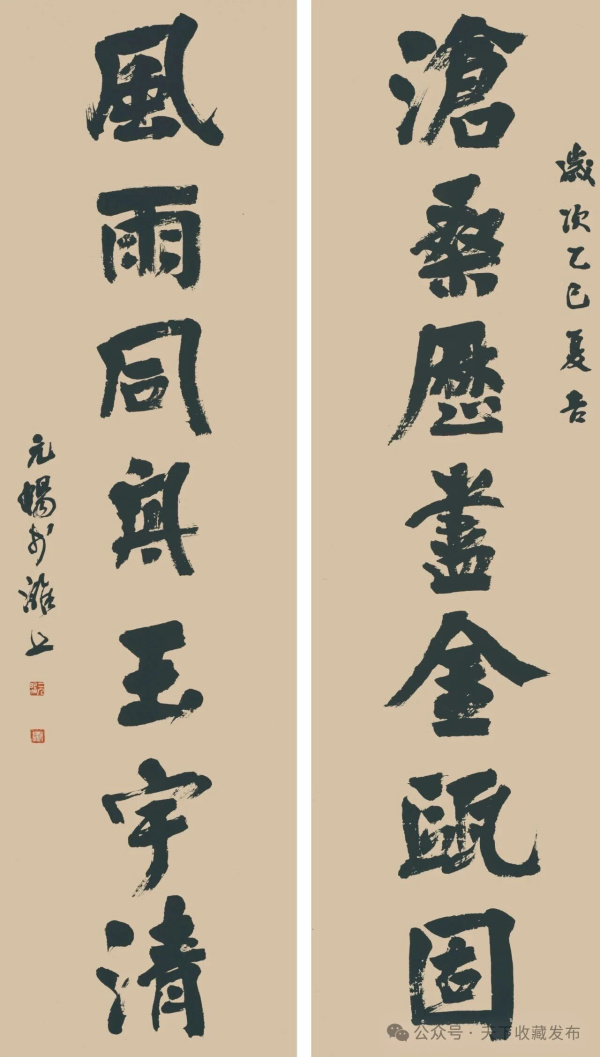 歲次乙巳夏吉
滄桑歷盡金甌固
風雨同興玉宇清
元暢於濰上
公众号·天下收藏发布